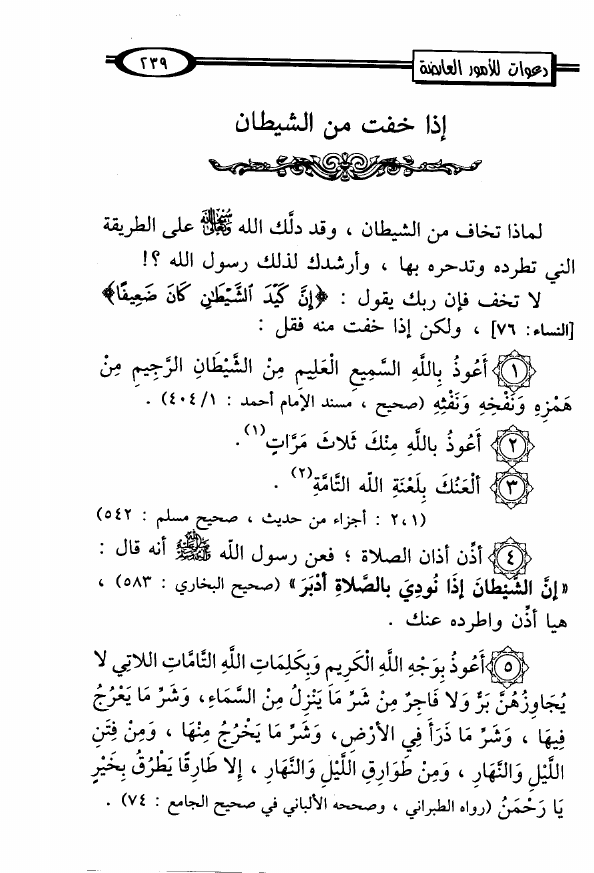 دعوات للأمور العارضة
٢٣٩
إذا خفت من الشيطان
لماذا تخاف من الشيطان ، وقد دلَّك الله ﷺ على الطريقة
التي تطرده وتدحره بها ، وأرشدك لذلك رسول الله ؟!
لا تخف فإن ربك يقول : ﴿إِنَّ كَيْدَ الشَّيْطَانِ كَانَ ضَعِيفًا﴾
[النساء: ٧٦] ، ولكن إذا خفت منه فقل :
١ أَعُوذُ بِاللَّهِ السَّمِيعِ الْعَلِيمِ مِنْ الشَّيْطَانِ الرَّجِيمِ مِنْ
هَمْزِهِ وَنَفْخِهِ وَنَفْثِهِ (صحيح ، مسند الإمام أحمد : ٤٠٤/١) .
٢ أَعُوذُ بِاللَّهِ مِنْكَ ثَلاثَ مَرَّاتٍ(١).
٣ أَلْعَنُكَ بِلَعْنَةِ اللَّه التَّامَّةِ(٢) .
(٢،١ : أجزاء من حديث ، صحيح مسلم : ٥٤٢)
٤ أذِّن أذان الصلاة ؛ فعن رسول الله ﷺ أنه قال :
«إنَّ الشَّيْطَانَ إِذَا نُودِيَ بالصَّلاةِ أَدْبَرَ» (صحيح البخاري : ٥٨٣) ،
هيا أذِّن واطرده عنك .
٥ أَعُوذُ بِوَجْهِ اللَّهِ الْكَرِيمِ وَبِكَلِمَاتِ اللَّهِ التَّامَّاتِ اللاتِي لا
يُجَاوِزُهُنَّ بَرٌّ وَلا فَاجِرٌ مِنْ شَرِّ مَا يَنْزِلُ مِنْ السَّمَاءِ، وَشَرِّ مَا يَعْرُجُ
فِيهَا ، وَشَرِّ مَا ذَرَأَ فِي الأَرْضِ، وَشَرِّ مَا يَخْرُجُ مِنْهَا ، وَمِنْ فِتَنِ
اللَّيْلِ وَالنَّهَارِ ، وَمِنْ طَوَارِقِ اللَّيْلِ وَالنَّهَارِ ، إِلا طَارِقًا يَطْرُقُ بِخَيْرٍ
يَا رَحْمَنُ (رواه الطبراني ، وصححه الألباني في صحيح الجامع : ٧٤) .